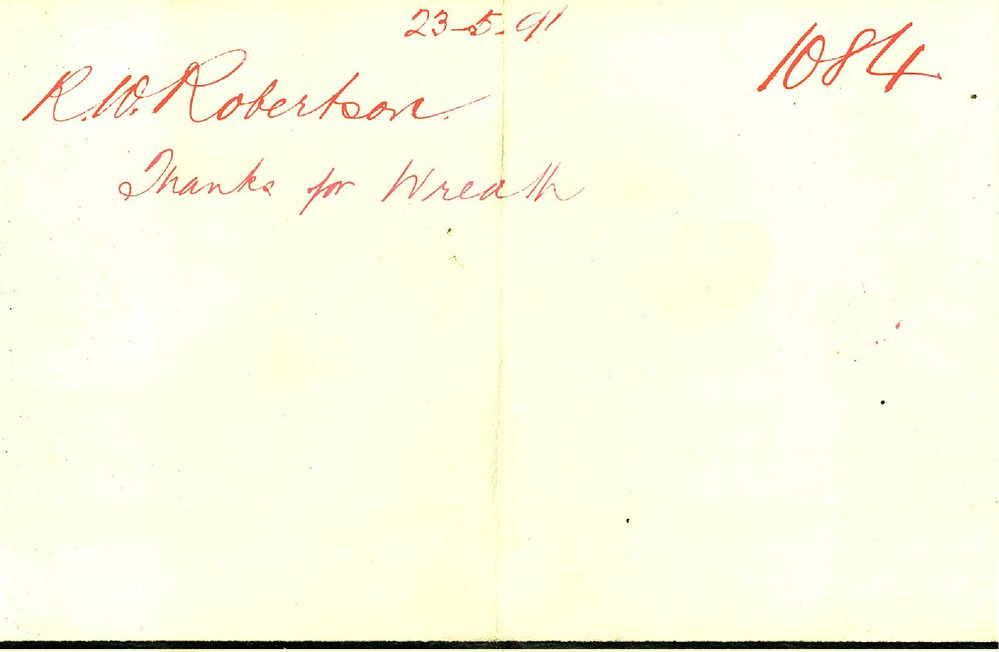 23-5-91
1084
R.W. Robertson.
Thanks for Wreath